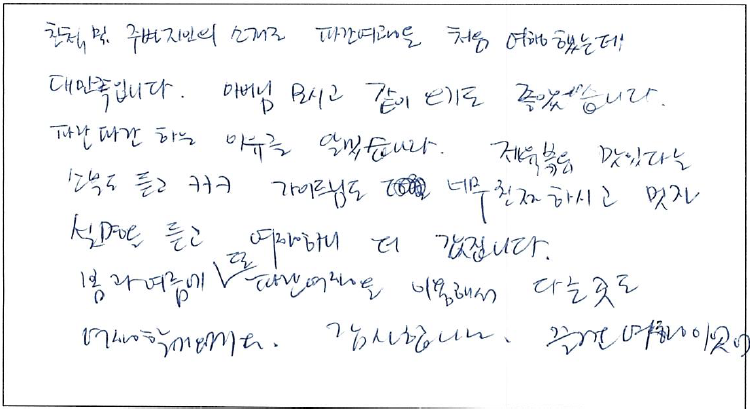 친척 및 주변지인의 소개로 파란여행을 처음 여행했는데
대만족입니다. 아버님 모시고 같이 오기도 좋았습니다.
파란파란 하는 이유를 알겠습니다. 제육볶음 맛있다는
소문도 듣고 ㅋㅋㅋ 가이드님도 너무 친절하시고 멋진
설명을 듣고 여행하니 더 값집니다.
봄과 여름에 또 파란여행을 이용해서 다른 곳도
감사합니다. 즐거운 여행이었어